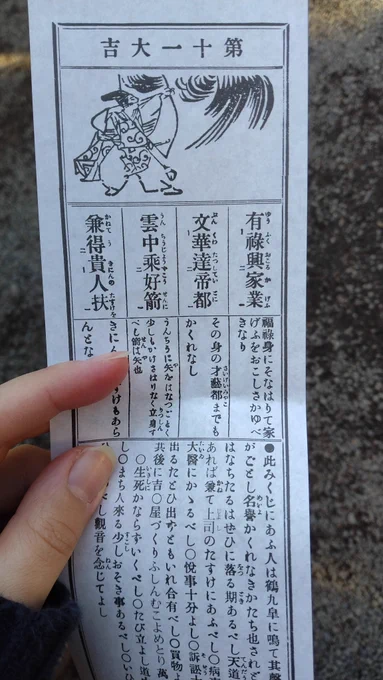 第十一大吉
有祿興家業
文華達帝都
雲中乘好箭
兼得貴人扶
福祿身にそなはりて家
げふをおこしさかゆべ
きなり
その身の才藝都までも
かくれなし
うんちうに矢をはなつごとく
少しもかげさはりなく立身す
べし箭は矢也
きに人 すけもあら
んとな
●此みくじにあふ人は鶴九皐に鳴て其聲
がごとし名譽かくれなきかたち也されど
はなちたるはせひに落る期あるべし天道
あれば兼て上司のたすけにあふべし〇病
大醫にかゝるべし〇悦事十分よし〇訴訟
出るたとひ出ずともいれ合有べし〇買物よ
其後に吉〇屋づくりふしんむこよめとり萬
〇生死かならずいくべし〇たび立よし
し〇まち人來る少しおそき事あるべし〇いひ
べし觀音を念じてよし